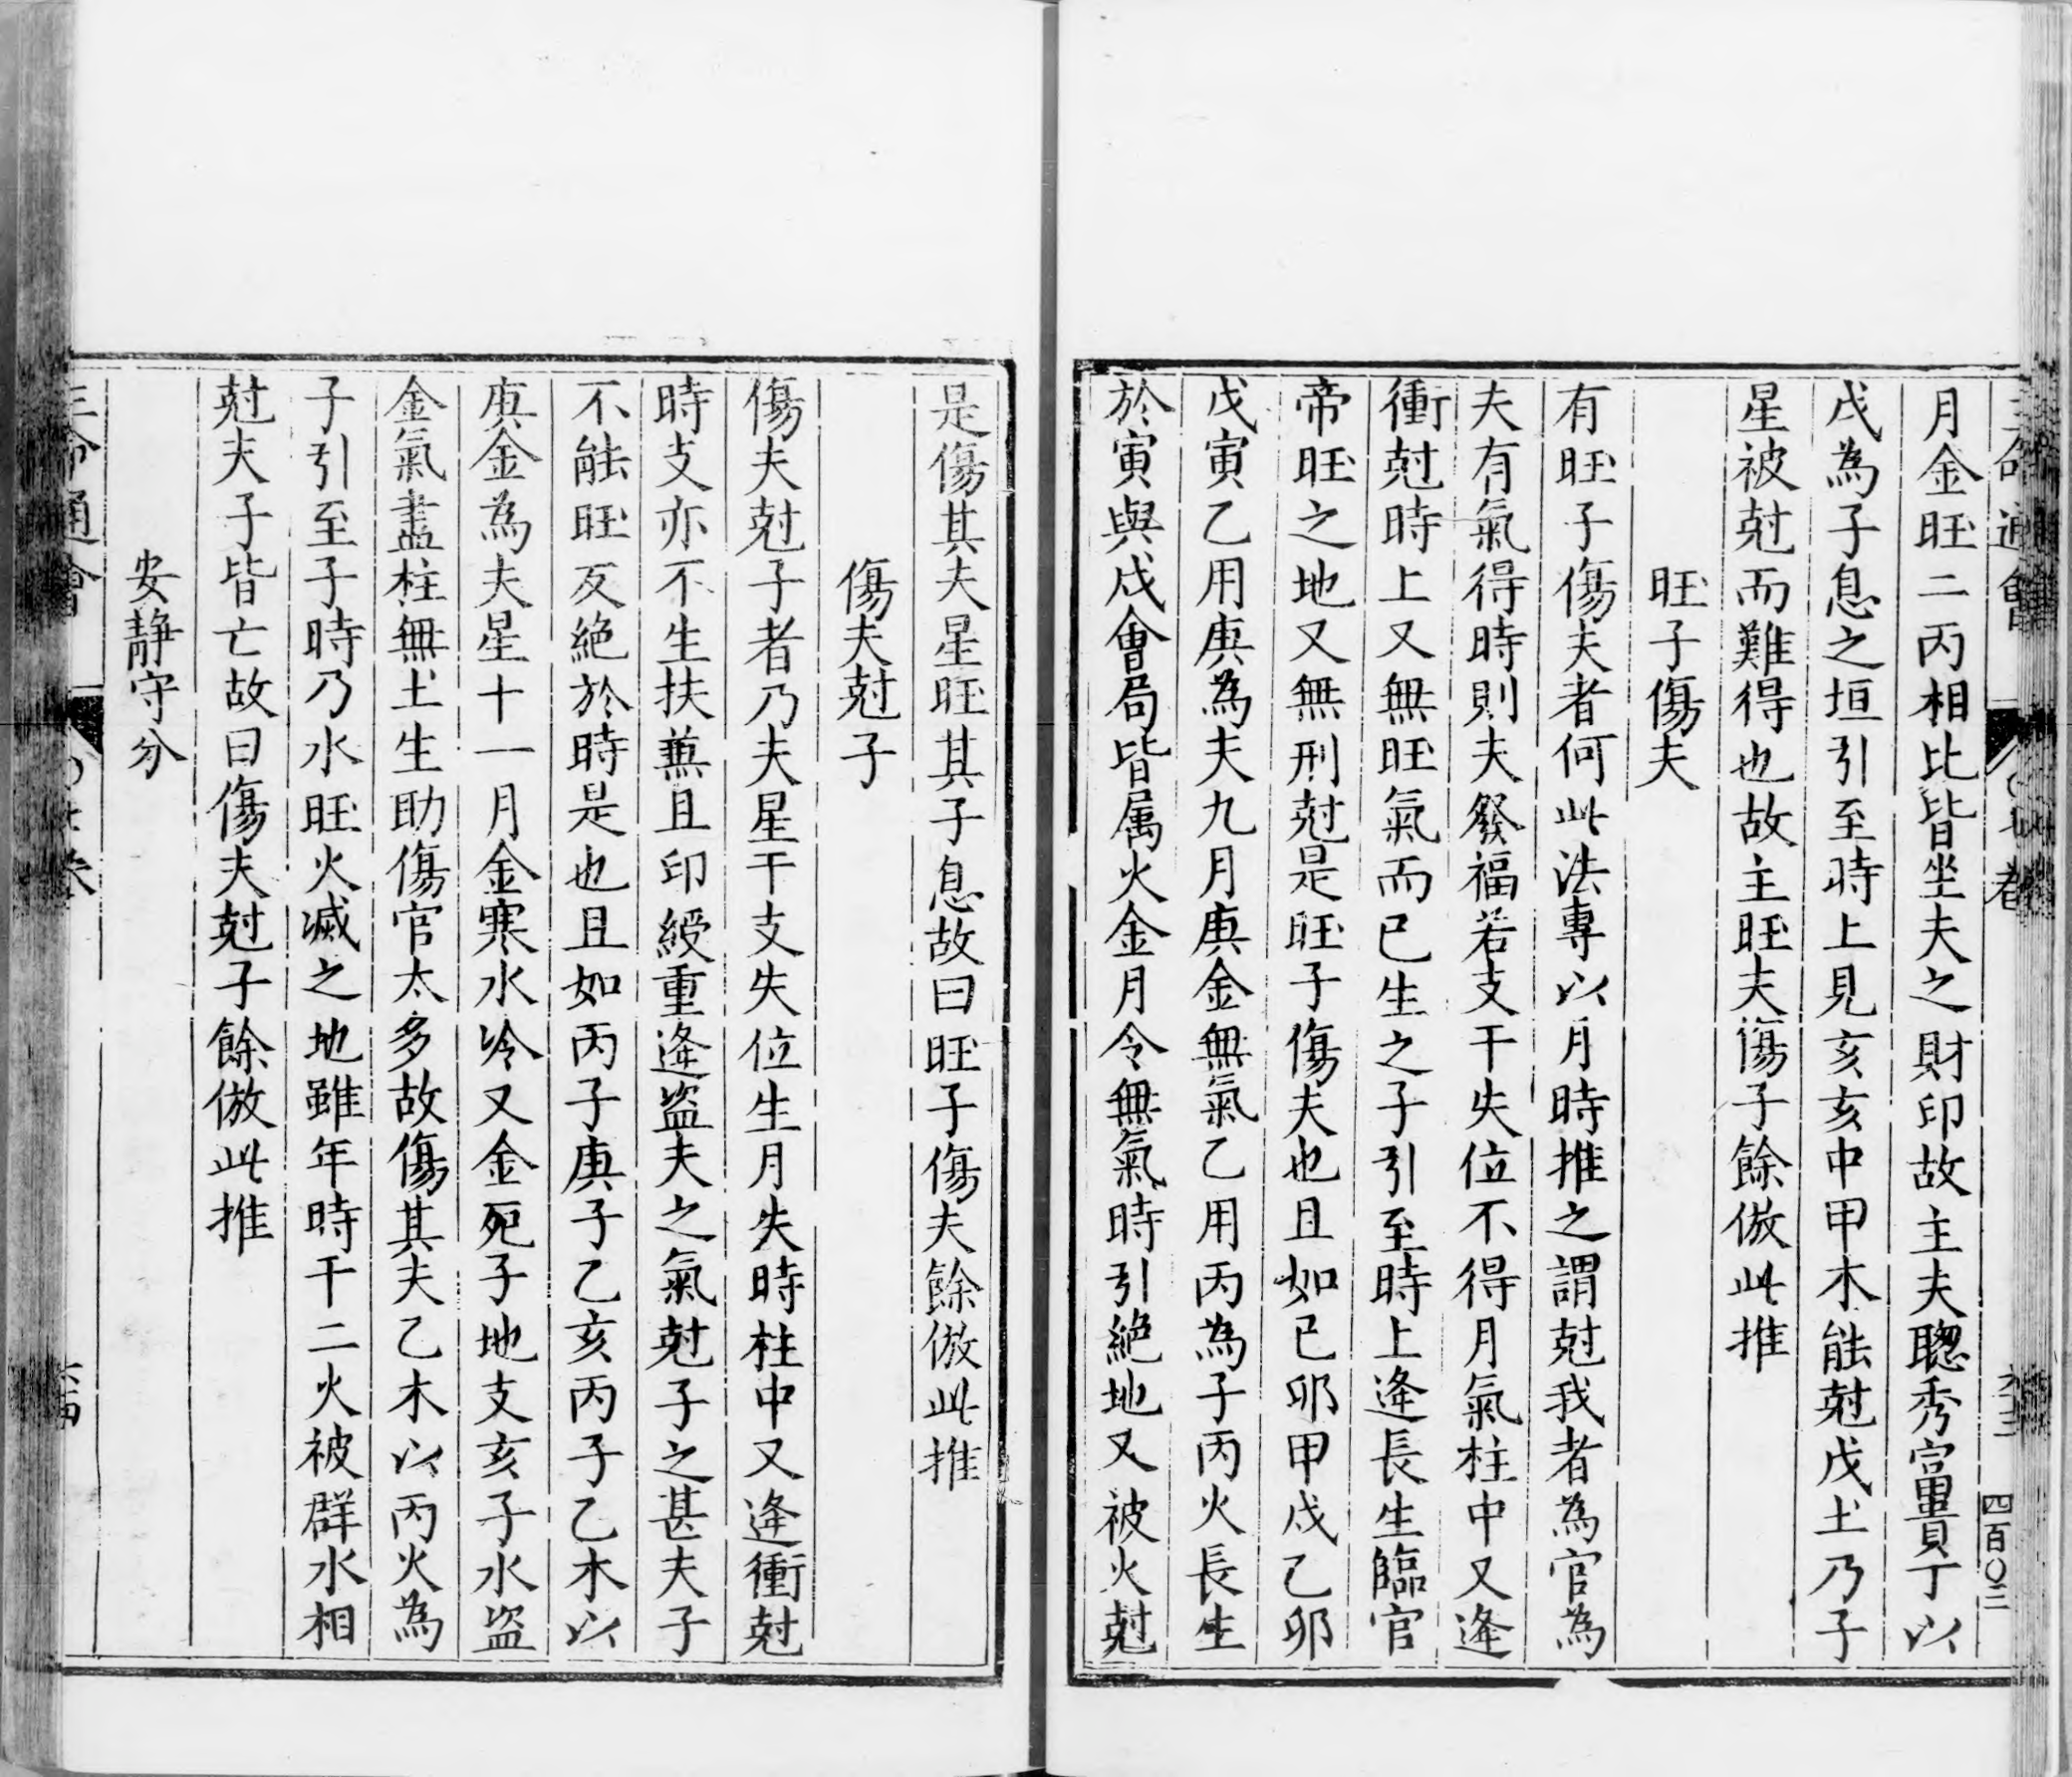 月金旺二丙相比皆坐夫之財印故主夫聰秀富貴丁以
戊為子息之垣引至時上見亥亥中甲木能尅戊土乃子
星被尅而難得也故主旺夫傷子餘倣此推
旺子傷夫
有旺子傷夫者何此法專以月時推之謂尅我者為官為
夫有氣得時則夫發福若支干失位不得月氣柱中又逢
衝尅時上又無旺氣而已生之子引至時上逢長生臨官
帝旺之地又無刑尅是旺子傷夫也且如已卯甲戌乙卯
戊寅乙用庚為夫九月庚金無氣乙用丙為子丙火長生
於寅與戌會局皆属火金月令無氣時引絕地又被火尅
是傷其夫星旺其子息故曰旺子傷夫餘倣此推
傷夫尅子
傷夫尅子者乃夫星干支失位生月失時柱中又逢衝尅
時支亦不生扶兼且印綬重逢盗夫之氣尅子之甚夫子
不能旺反絕於時是也且如丙子庚子乙亥丙子乙木以
庚金為夫星十一月金寒水冷又金死子地支亥子水盗
金氣盡柱無土生助傷官太多故傷其夫乙木以丙火為
子引至子時乃水旺火滅之地雖年時干二火被群水相
尅夫子皆亡故曰傷夫尅子餘倣此推
安靜守分